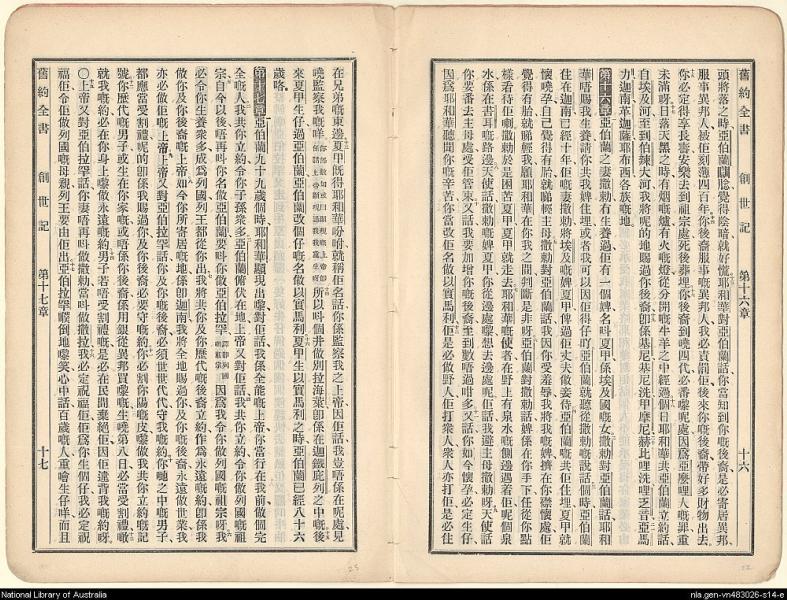 舊約全書 創世記 第十六章 十六
頭將落之時亞伯蘭瞓覺得陰暗就好慌耶和華對亞伯蘭話你當知到你嘅後裔是必寄居異邦
服事異邦人被佢刻薄四百年你後裔服事嘅異邦人我必責罰佢後來你嘅後裔帶好多財物出去
你必定得享長壽安樂去到祖宗處死後葬埋你後裔到嘵四代必番嚟呢處因為亞麼哩人嘅罪重
未滿呀日落天黑之時有烟嘅爐有火嘅燈從分開嘅牛羊之中經過個日耶和華共亞伯蘭立約話
自埃及河至到伯辣大河我將呢的地賜過你後裔即係基尼基尼洗甲摩尼赫比哩洗哩乏音亞馬
力迦南革迦薩耶布西各族嘅地
第十六章亞伯蘭之妻撒勑冇生養過佢有一個婢名叫夏甲係埃及國嘅女撒勑對亞伯蘭話耶和
華唔賜我生養請你共我婢住埋或者我可以因佢得仔吖亞伯蘭就聽從撒勑嘅說話個時亞伯蘭
住在迦南已經十年佢嘅妻撒勑將埃及嘅婢夏甲俾過佢丈夫做妾侍亞伯蘭嘅共佢住埋夏甲就
懷嘵孕自己覺得有胎就睇輕主母撒勑對亞伯蘭話我因你受羞辱我將我嘅婢擠在你懷裏處佢
覺得有胎就睇輕我願耶和華在你我之間判斷是非呀亞伯蘭對撒勑話婢係在你手下任從你點
樣看待佢嘞撒勑於是困苦夏甲夏甲就走去耶和華嘅使者在野上有泉水嘅側邊遇着佢呢個泉
水係在書珥嘅路邊天使話撒勑嘅婢夏甲你從邊處嚟想去邊處呢佢話我避主母撒勑呀天使話
你要番去主母處受佢管束又話我要加增你嘅後裔至到數唔過咁多又話你如今懷孕必定生仔
因為耶和華聽聞你嘅辛苦你當改佢名做以實馬利佢是必做野人佢打衆人衆人亦打佢是必住
在兄弟嘅東邊夏甲旣得耶和華吩咐就稱佢名話你係監察我之上帝因佢話我豈唔係在呢處見
嘵監察我嘅咩 所以叫個井做別拉海萊即係在迦鐵庇列之中嘅後
來夏甲生仔過亞伯蘭亞伯蘭改個仔嘅名做以實馬利夏甲生以實馬利之時亞伯蘭已經八十六
歲咯
第十七章亞伯蘭九十九歲個時耶和華顯現出嚟對佢話我係全能嘅上帝你當行在我前做個完
全嘅人我共你立約令你子孫衆多亞伯蘭俯伏在地上帝又對佢話我共你立約令你做列國嘅祖
宗自今以後唔再叫你名做亞伯蘭要叫你做亞伯拉罕 因為我令你做列國嘅祖宗呀我
必令你生養衆多成為列國列王都從你出我將共你及你歷代嘅後裔立約作為永遠嘅約即係我
做你及你後裔嘅上帝如今你所寄居嘅地係即迦南我將全地賜過你及你嘅後裔永遠做世業我
亦必做佢哋上帝上帝又對亞伯拉罕話你及你嘅後裔必須世世代代守我嘅約你哋之中嘅男子
都應當受割禮呢的即係我賜過你及你後裔必要守嘅約你必割你陽嘅皮嚟做我共你立約嘅記
號你歷代嘅男子或生在你家嘅或唔係你後裔係用銀從異邦買嚟嘅生嘵第八日必當受割禮噉
就我嘅約必在你身上嚟做永遠嘅約男子若唔受割禮嘅是必在民間棄絕佢因佢違背我嘅約呀
〇上帝又對亞伯拉罕話你妻唔再叫做撒勑當叫做撒拉我必定祝福佢佢為你生個仔我必定祝
福佢令佢做列國嘅母親列王要由佢出亞伯拉罕㗒倒地嚟笑心中話百歲嘅人重噲生仔咩而且
舊約全書 創世記 第十七章 十七
National Library of Australia
nla.gen-vn483026-s14-e